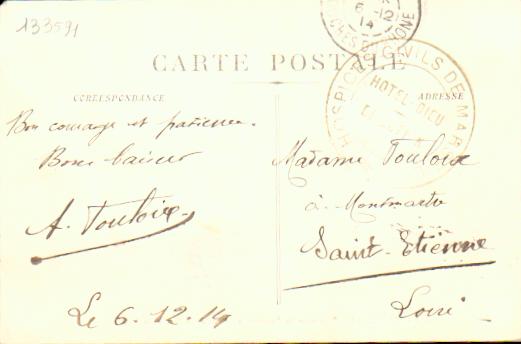 133591
6-12
14
BOUCHES DU RHONE
CARTE POSTALE
HOSPICES CIVILS DE MAR
HOTEL-DIEU
CORRESPONDANCE
ADRESSE
Bon courage et patience.
Bons baisers
A. Touloix
Le 6.12.14
Madame Touloix
à Montmartre
Saint-Etienne
Loire